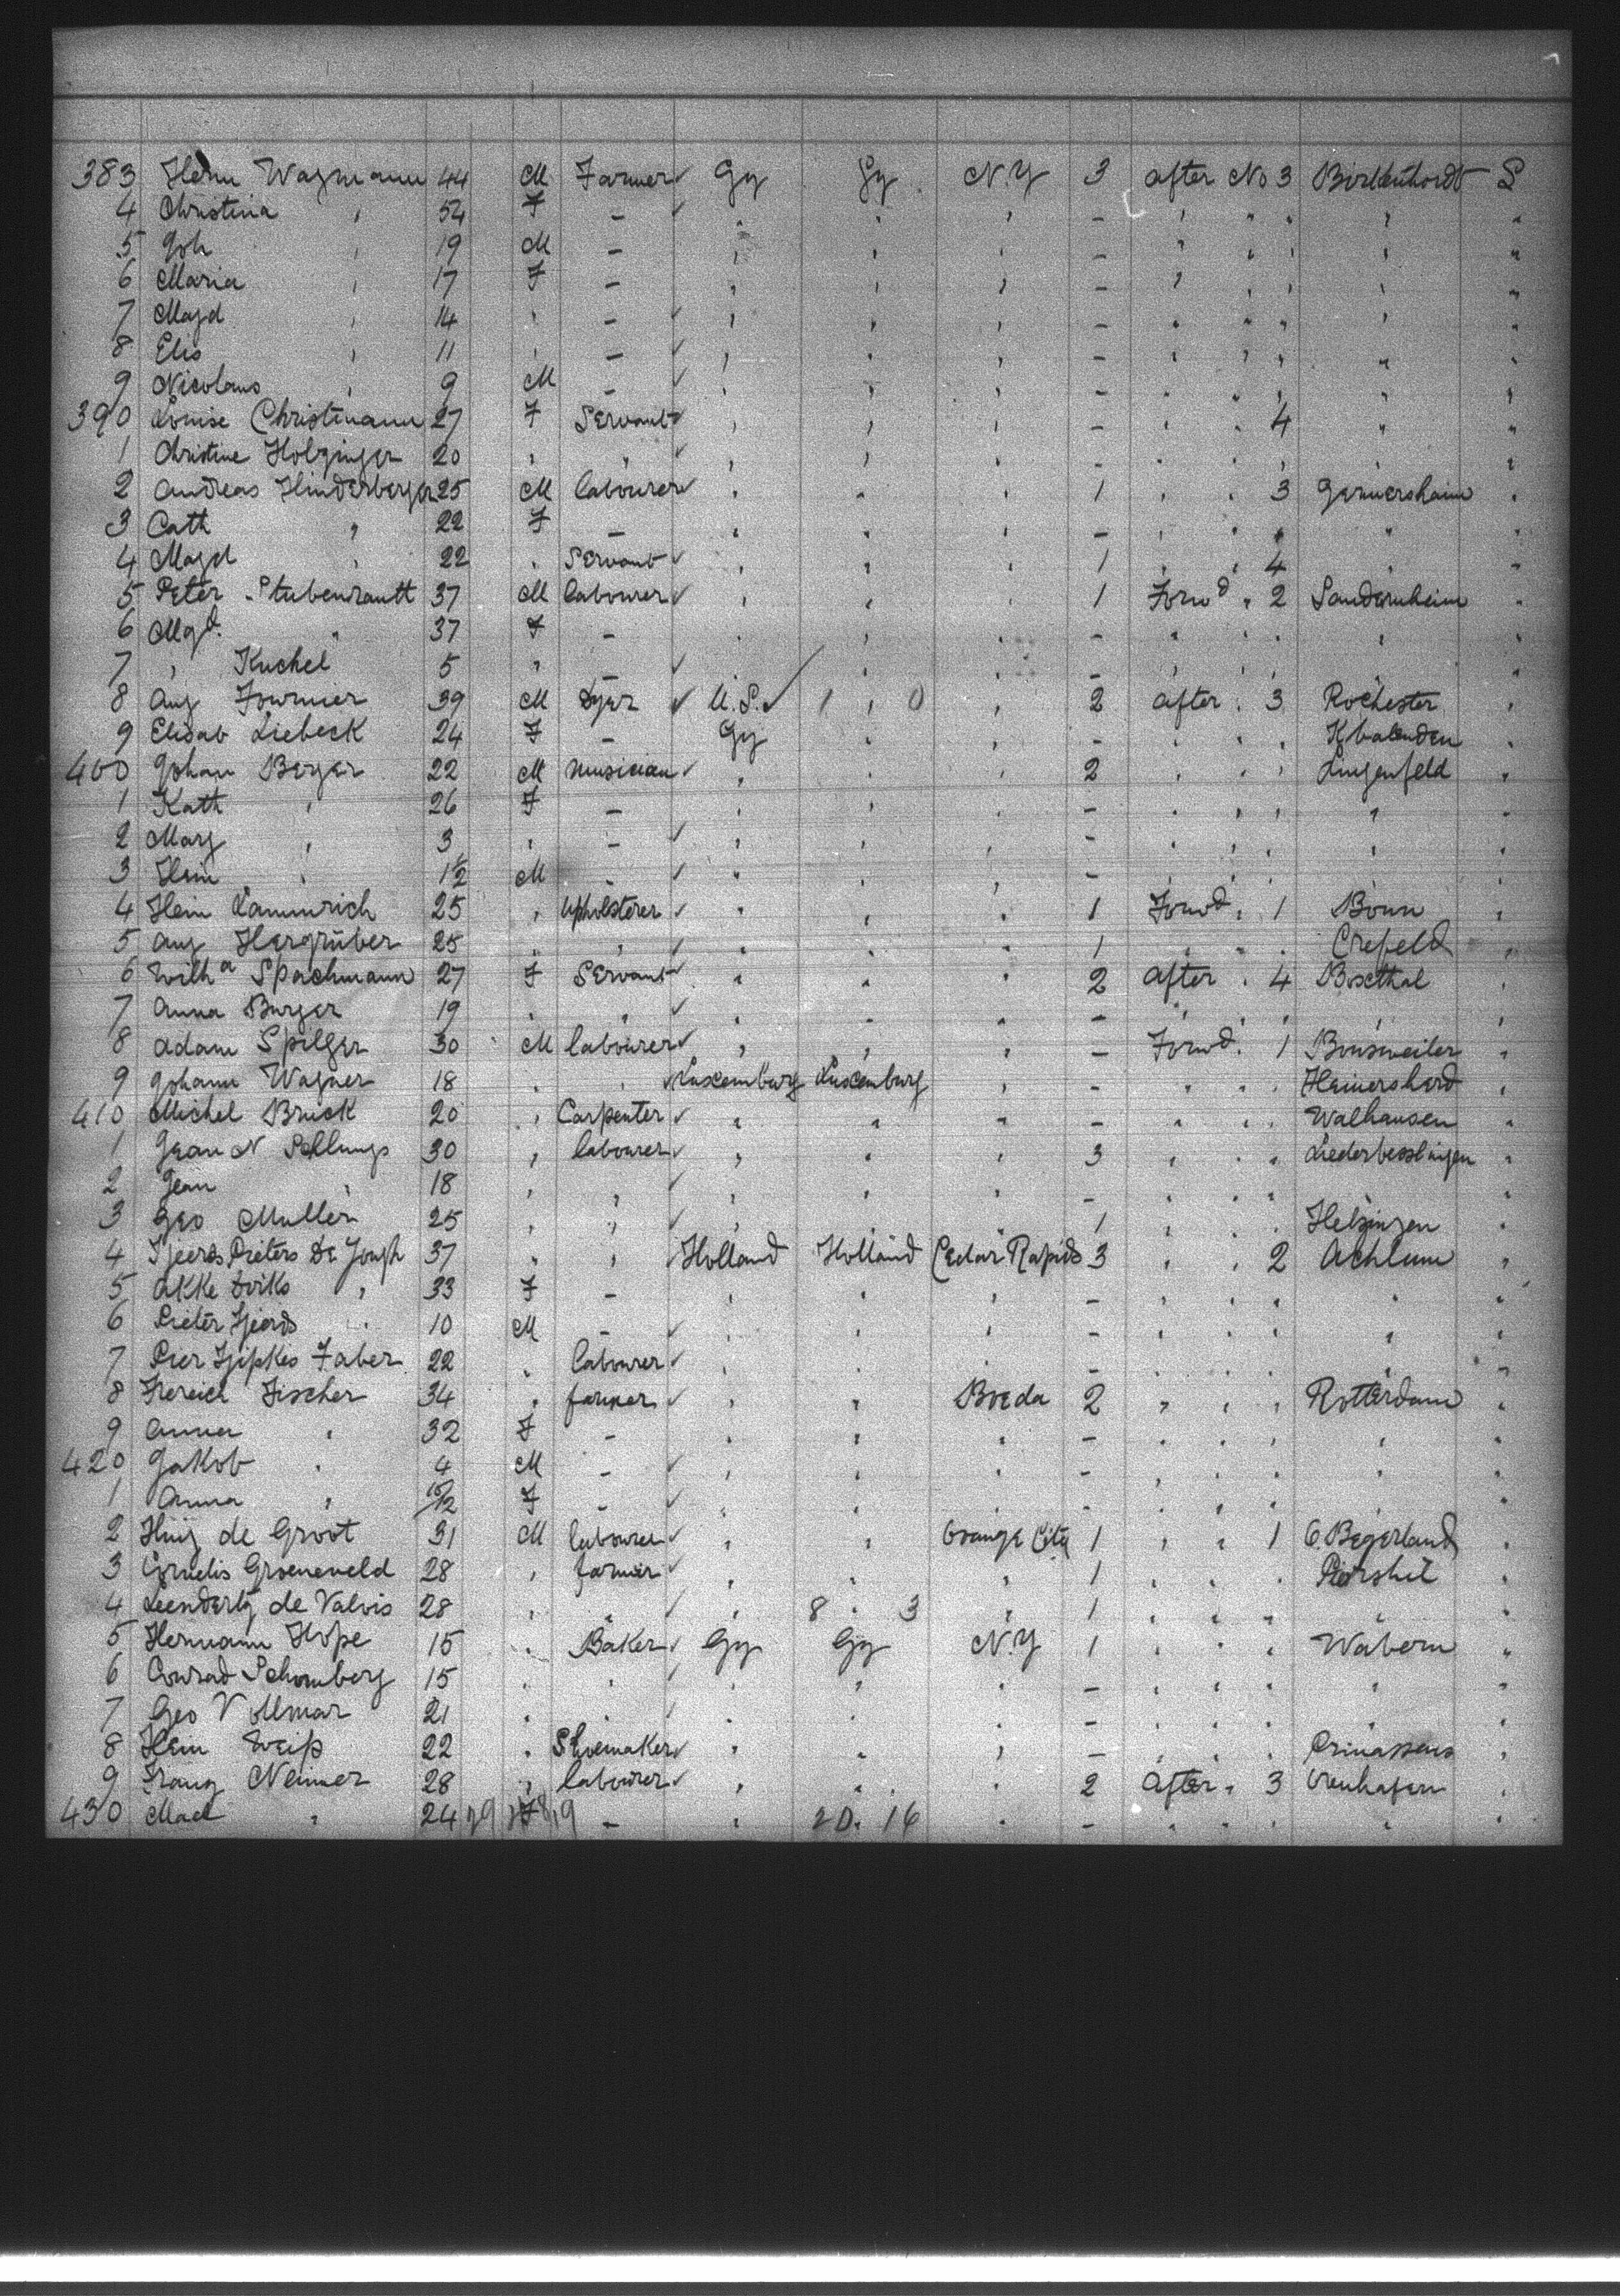 383 Herm Wagmann 44 M Farmer ✓ Gy Gy N.Y 3 after No 3 Birkenhordt S
4 Christina " 54 F – ✓ " " " – " " " " "
5 Joh " 19 M – " " " – " " " " "
6 Maria " 17 F – " " " – " " " " "
7 Magd " 14 " – ✓ " " " – " " " " "
8 Elis " 11 " – ✓ " " " – " " " " "
9 Nicolaus " 9 M – ✓ " " " – " " " " "
390 Louise Christmann 27 F Servant ✓ " " " – " " 4 " "
1 Christine Holzinger 20 " " ✓ " " " – " " " " "
2 Andreas Hinderberger 25 M labourer ✓ " " " 1 " " 3 Germersheim "
3 Cath " 22 F – " " " – " " " " "
4 Magd " 22 " Servant ✓ " " " 1 " " 4 " "
5 Peter Stubenrautt 37 M labourer ✓ " " " 1 Forwd " 2 Sandernheim "
6 Mgd. " 37 F – " " " – " " " " "
7 " Kuchel 5 " – ✓ " " " – " " " " "
8 Aug Fournier 39 M Dyer ✓ U.S. ✓ 1 " 0 " 2 after " 3 Rochester "
9 Elisab Liebeck 24 F – Gy " " – " " " "
400 Johan Berger 22 M musician ✓ " " " 2 " " " Lingenfeld "
1 Kath " 26 F – " " " – " " " " "
2 Marg " 3 " – ✓ " " " – " " " " "
3 Hein " 1½ M – ✓ " " " – " " " " "
4 Hein Lammrich 25 " Upholsterer ✓ " " " 1 Forwd " 1 Bonn "
5 Aug Hergrüber 25 " " ✓ " " " 1 " " " Crefeld "
6 Wilha Spachmann 27 F Servant ✓ " " " 2 after " 4 Boethal "
7 Anna Burger 19 " " ✓ " " " – " " " " "
8 Adam Spilger 30 M labourer ✓ " " " – Forwd. 1 Bonsweiler "
9 Johann Wagner 18 " " ✓ Luxemburg Luxemburg " – " " " Heinershard "
410 Michel Bruck 20 " Carpenter ✓ " " " – " " " Walhausen "
1 Jean N Schlungs 30 " labourer ✓ " " " 3 " " " "
2 Jean " 18 " " ✓ " " " – " " " "
3 Geo Muller 25 " " ✓ " " " 1 " " " Helzingen "
4 Tjeerds Pieters De Jongh 37 " " ✓ Holland Holland Cedar Rapids 3 " " 2 Achlum "
5 Akke Dirks " 33 F – " " " – " " " " "
6 Pieter Tjeerds " 10 M – ✓ " " " – " " " " "
7 Pier Tjipkes Faber 22 " labourer ✓ " " " – " " " " "
8 Frereich Fischer 34 " farmer ✓ " " Breda 2 " " " Rotterdam "
9 Anna " 32 F – " " " – " " " " "
420 Jakob " 4 M – ✓ " " " – " " " " "
1 Anna " 10/12 F – ✓ " " " – " " " " "
2 Huig de Groot 31 M labourer ✓ " " Orange City 1 " " 1 O. Begerland "
3 Cornelis Groeneveld 28 " farmer ✓ " " " 1 " " " Piershil "
4 Leendertz de Valois 28 " " ✓ " 8 " 3 " 1 " " " " "
5 Hermann Hope 15 " Baker ✓ Gy Gy N.Y 1 " " " Wabern "
6 Conrad Schomberg 15 " " ✓ " " " – " " " " "
7 Geo Vollmar 21 " " ✓ " " " – " " " " "
8 Hein Weiß 22 " Shoemaker ✓ " " " – " " " "
9 Franz Neimer 28 " labourer ✓ " " " 2 after " 3 "
430 " 24 F – " 20 " 16 " – " " " " "